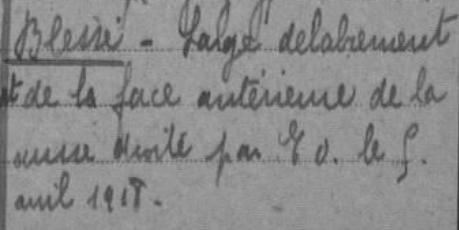 Blessé - Large délabrement
de la face antérieure de la
cuisse droite par E O. le 9.
avril 1918.